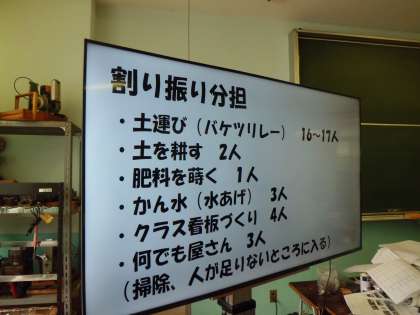 割り振り分担
・土運び(バケツリレー) 16~17人
・土を耕す 2人
・肥料を蒔く 1人
・かん水(水あげ) 3人
・クラス看板づくり 4人
・何でも屋さん 3人
(掃除、人が足りないところに入る)